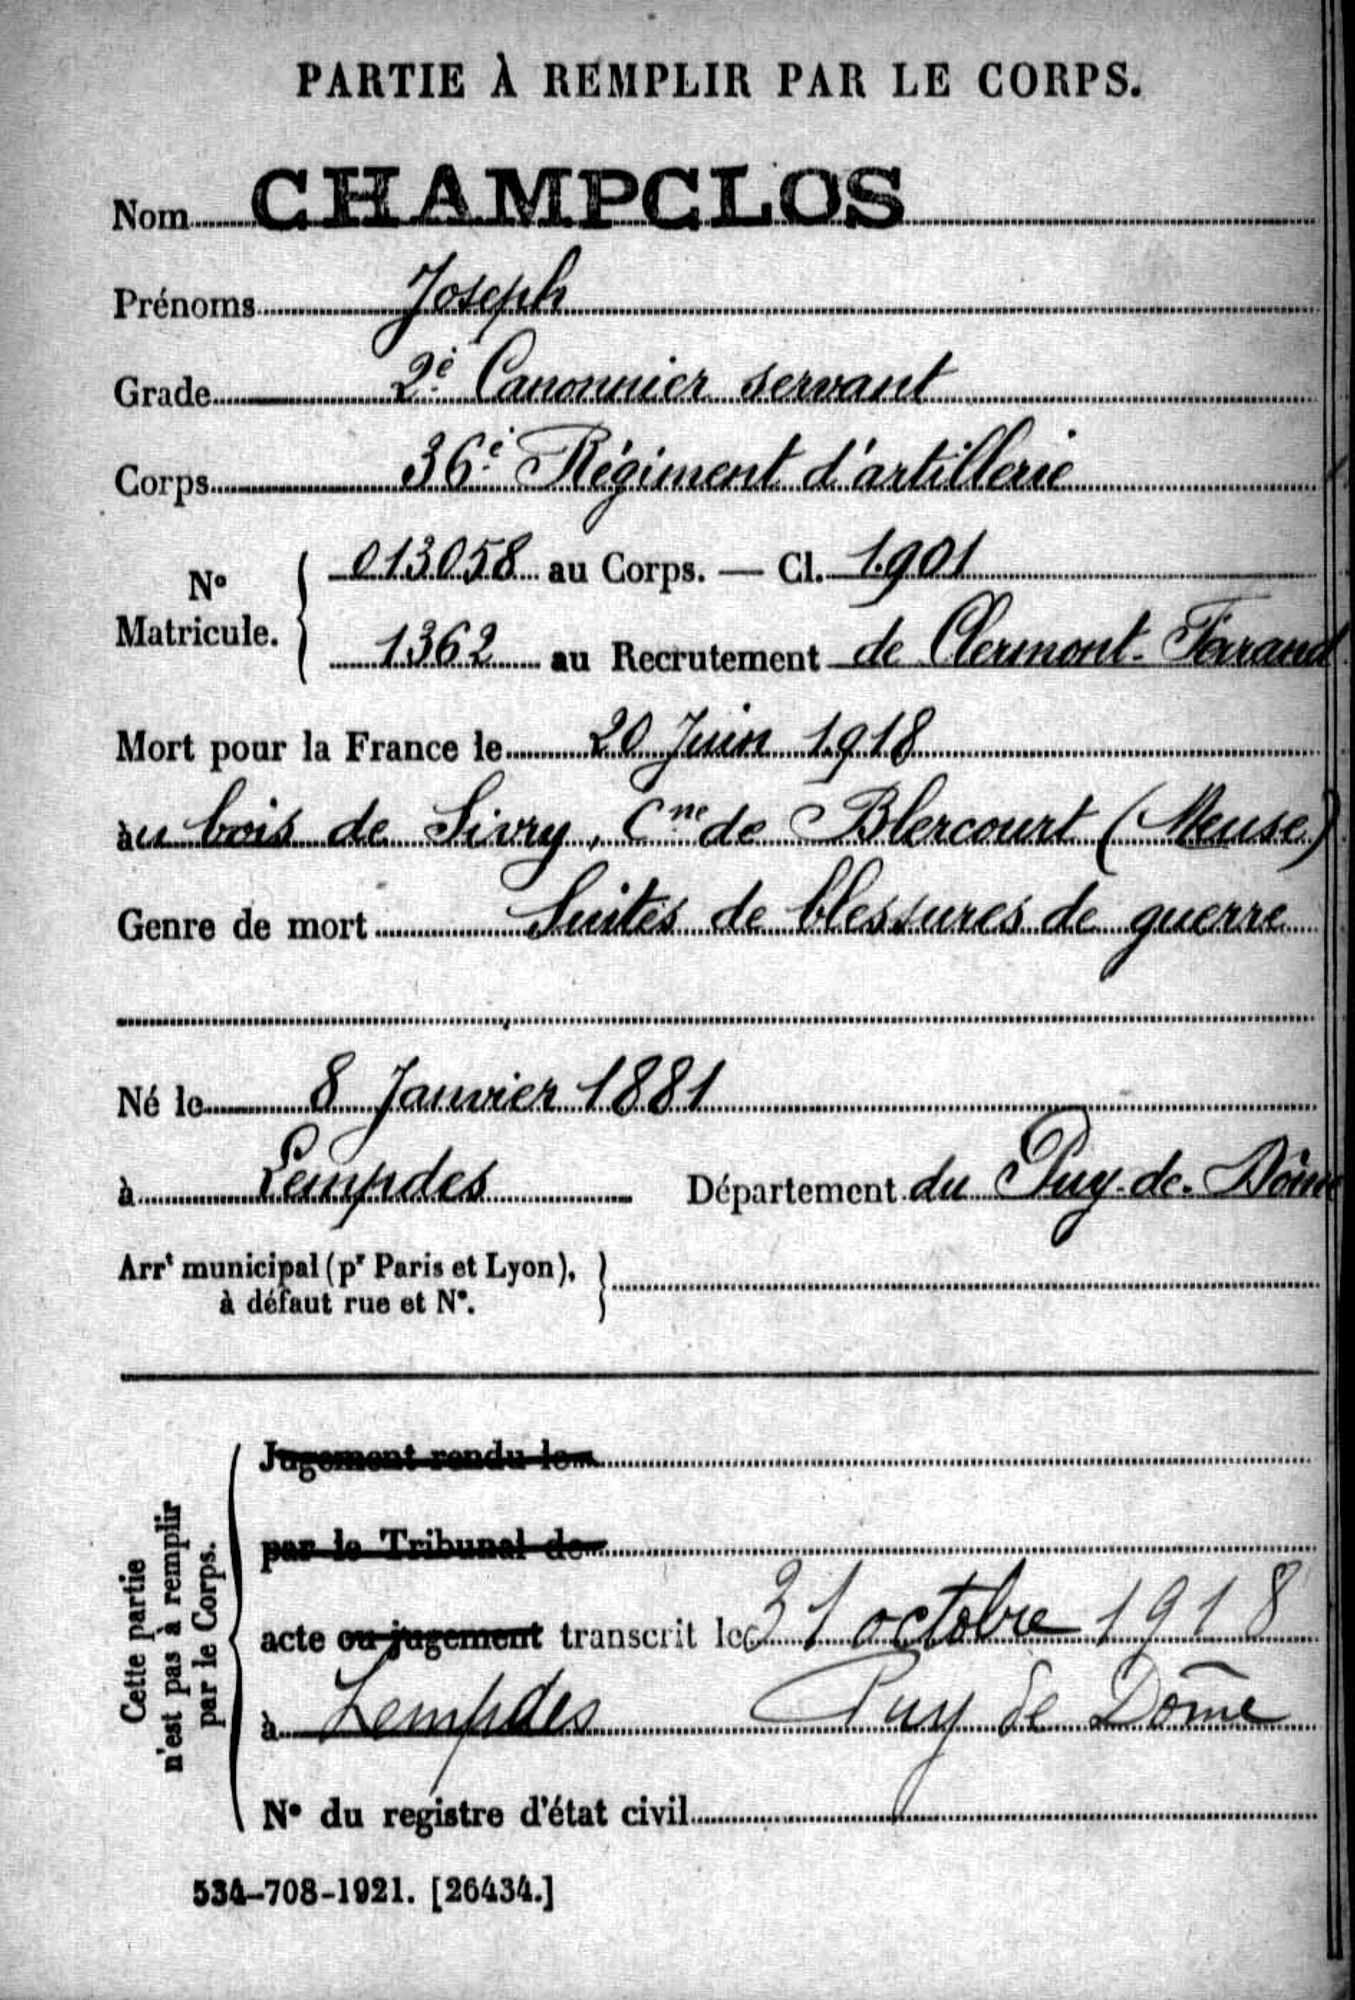 PARTIE À REMPLIR PAR LE CORPS.
Nom CHAMPCLOS
Prénoms Joseph
Grade 2è Canonnier servant
Corps 36è Régiment d'artillerie
N° Matricule. 013058 au Corps. — Cl. 1901
1362 au Recrutement de Clermont-Ferrand
Mort pour la France le 20 Juin 1918
au bois de Sivry, Cne de Blercourt (Meuse)
Genre de mort Suites de blessures de guerre
Né le 8 Janvier 1881
à Lempdes Département du Puy-de-Dôme
Arrt municipal (pr Paris et Lyon),
à défaut rue et N°.
Cette partie
n'est pas à remplir
par le Corps.
Jugement rendu le
par le Tribunal de
acte ou jugement transcrit le 31 octobre 1918
à Lempdes Puy de Dôme
N° du registre d'état civil
534-708-1921. [26434.]